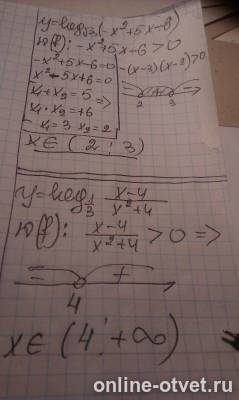 y=log√3(-x²+5x-6)
D(f): -x²+5x-6>0
-x²+5x-6=0 -(x-3)(x-2)>0
x²-5x+6=0
x₁+x₂=5 =>
x₁·x₂=+6 2 3
x₁=3 x₂=2
x∈(2;3)
y=log 1/3 x-4/x²+4
D(f): x-4/x²+4 >0 =>
- +
4
x∈(4;+∞)
online-otvet.ru